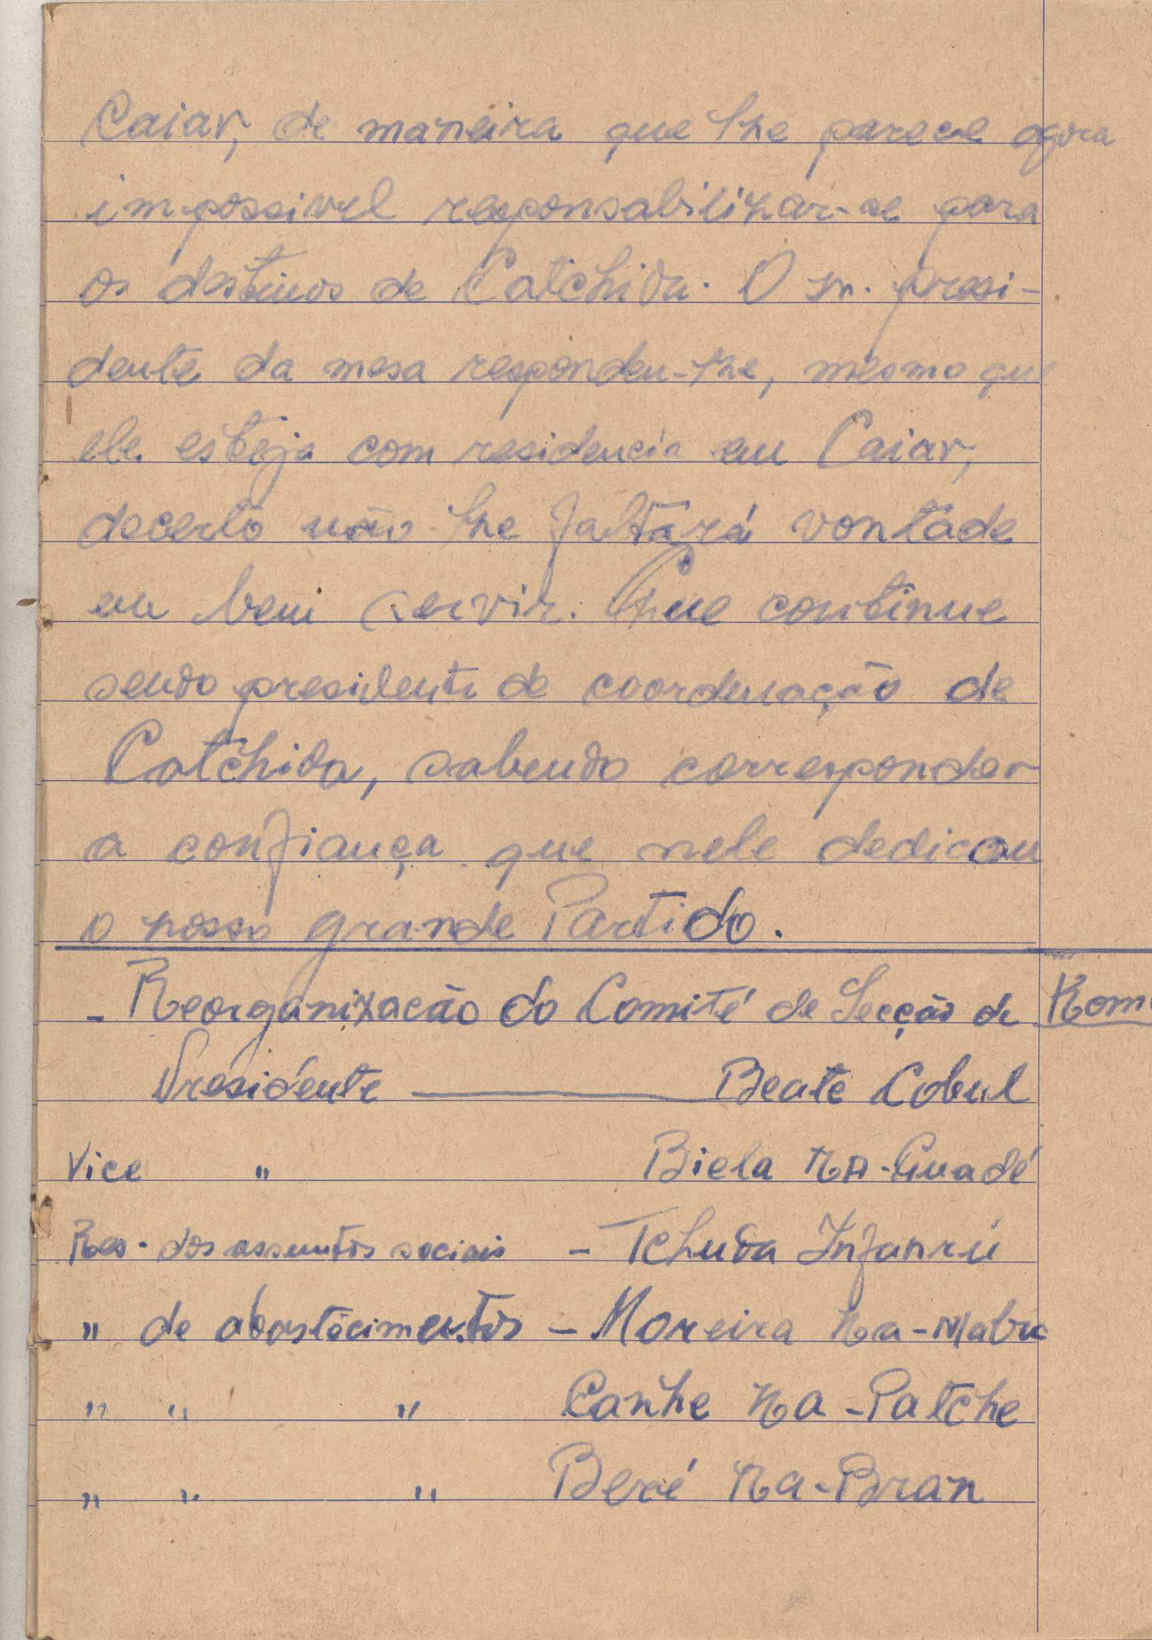 Caiar, de maneira que lhe parece agora
impossivel responsabilizar-se para
os destinos de Catchida. O sr. presi-
dente da mesa respondeu-lhe, mesmo que
ele esteja com residencia em Caiar,
decerto não lhe faltará vontade
em bem servir. Que continue
sendo presidente de coordenação de
Catchida, sabendo corresponder
a confiança que nele dedicou
o nosso grande Partido.
- Reorganização do Comité de Secção de Kom
Presidente — Beate Cobul
Vice " Biela Na-Guadé
Res. dos assuntos sociais - Tchuda Infanrú
" de abastecimentos - Moreira Na-Mabu
" " " Canhe Na-Patche
" " " Beré Na-Bran